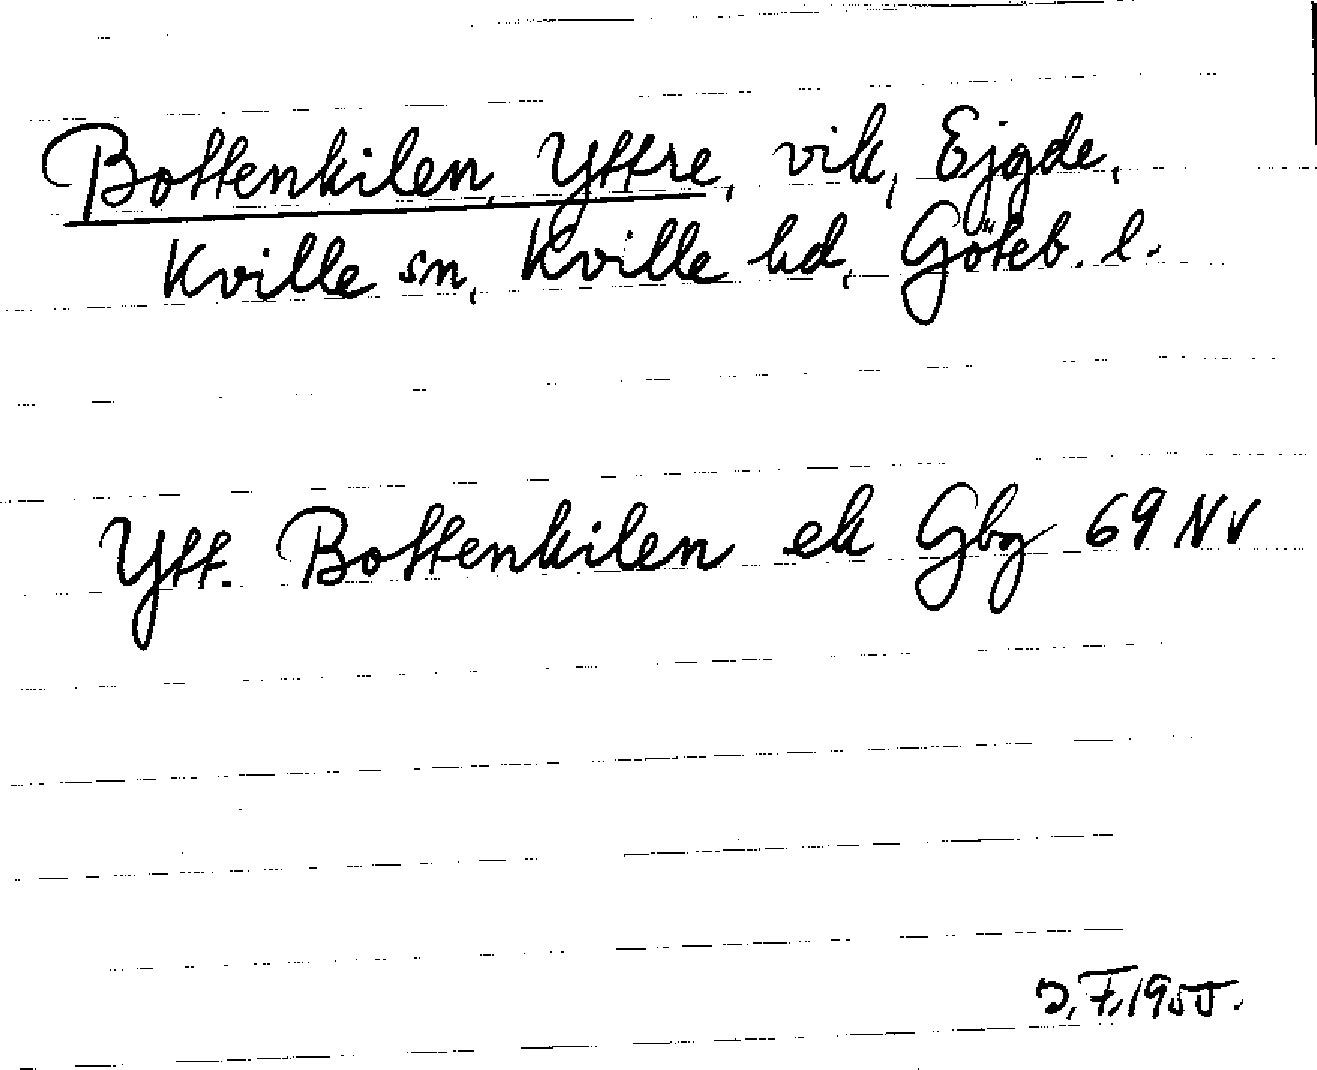 Bottenkilen, Yttre, vik, Ejgde,
Kville sn, Kville hd, Göteb. l.
Ytt. Bottenkilen ek Gbg 69 NV
J.F. 1955.